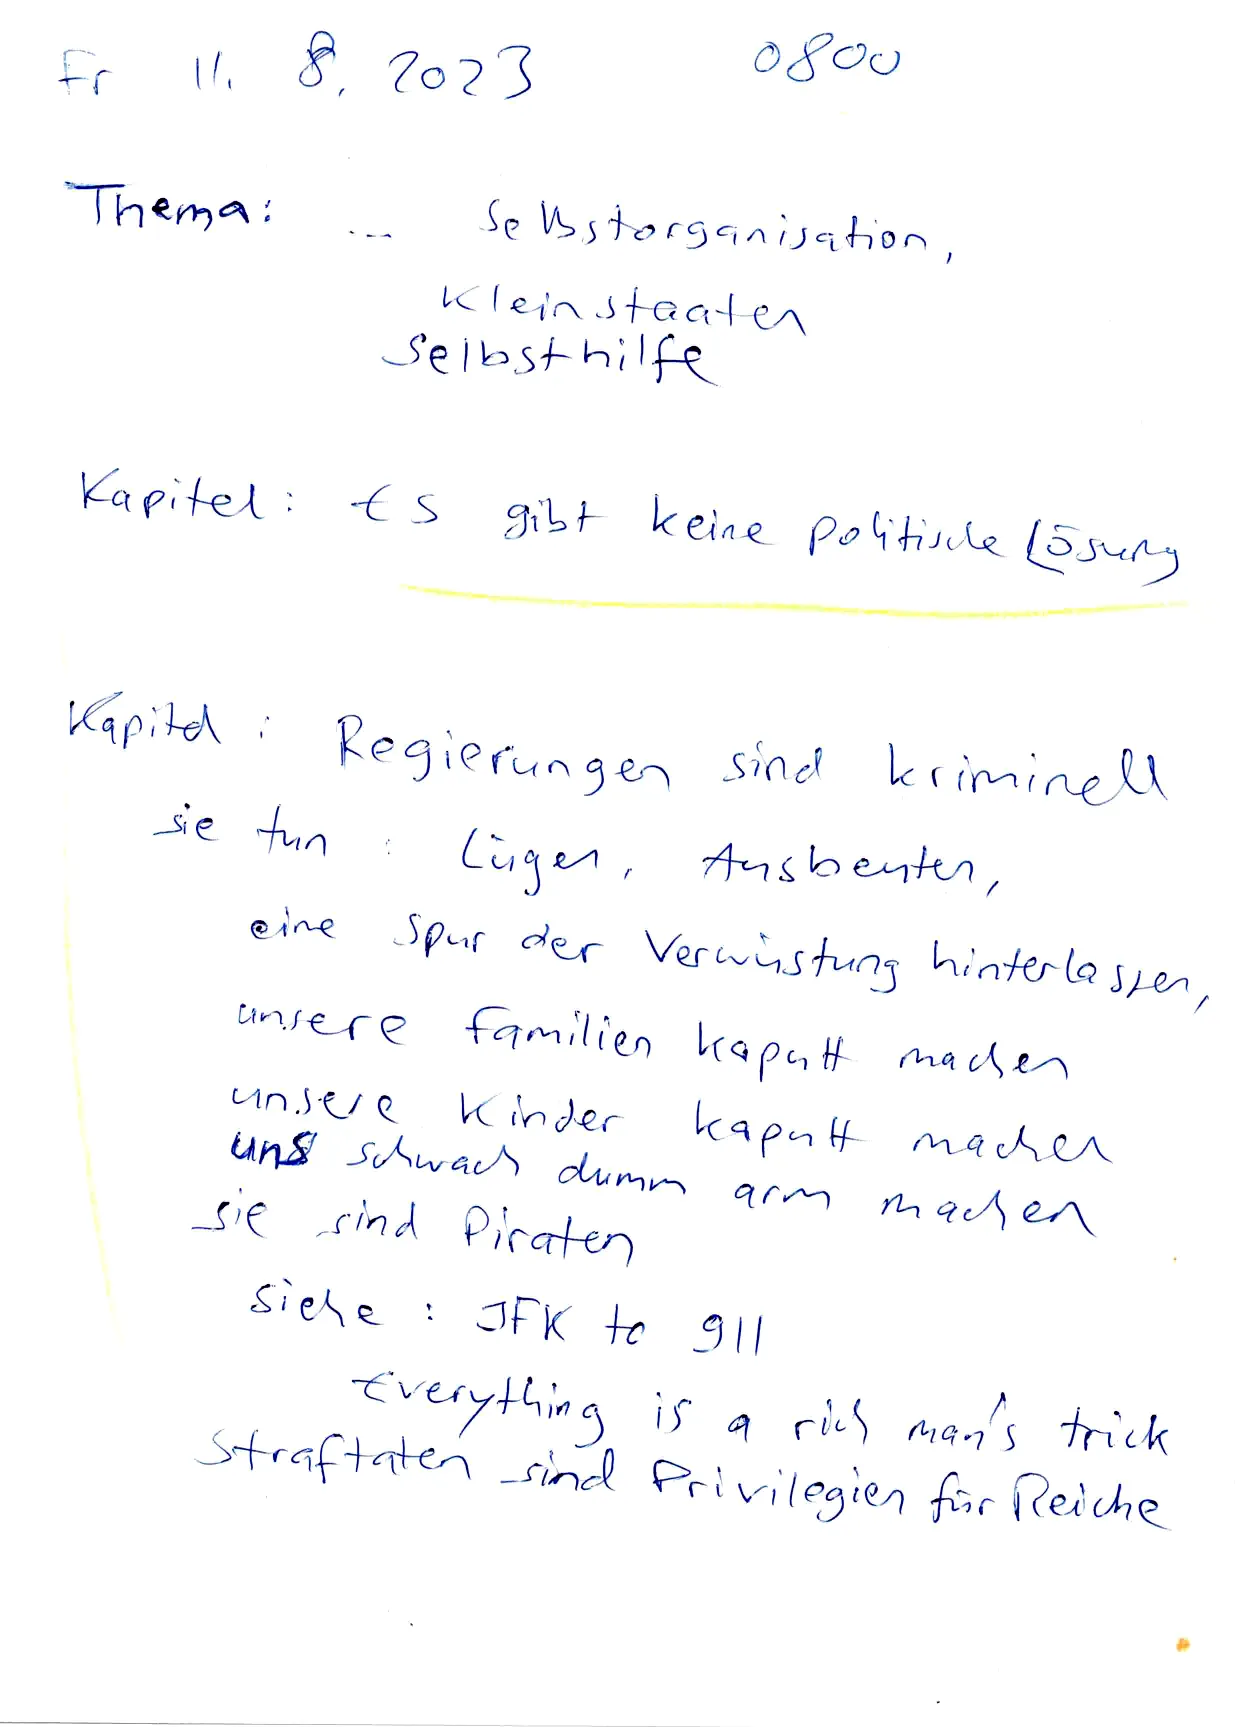 Fr 11. 8. 2023 0800
Thema: ... Selbstorganisation,
Kleinstaaten
Selbsthilfe
Kapitel: Es gibt keine politische Lösung
Kapitel: Regierungen sind kriminell
sie tun: Lügen, Ausbeuten,
eine Spur der Verwüstung hinterlassen,
unsere Familien kaputt machen
unsere Kinder kaputt machen
uns schwach dumm arm machen
sie sind Piraten
siehe: JFK to 911
Everything is a rich man's trick
Straftaten sind Privilegien für Reiche